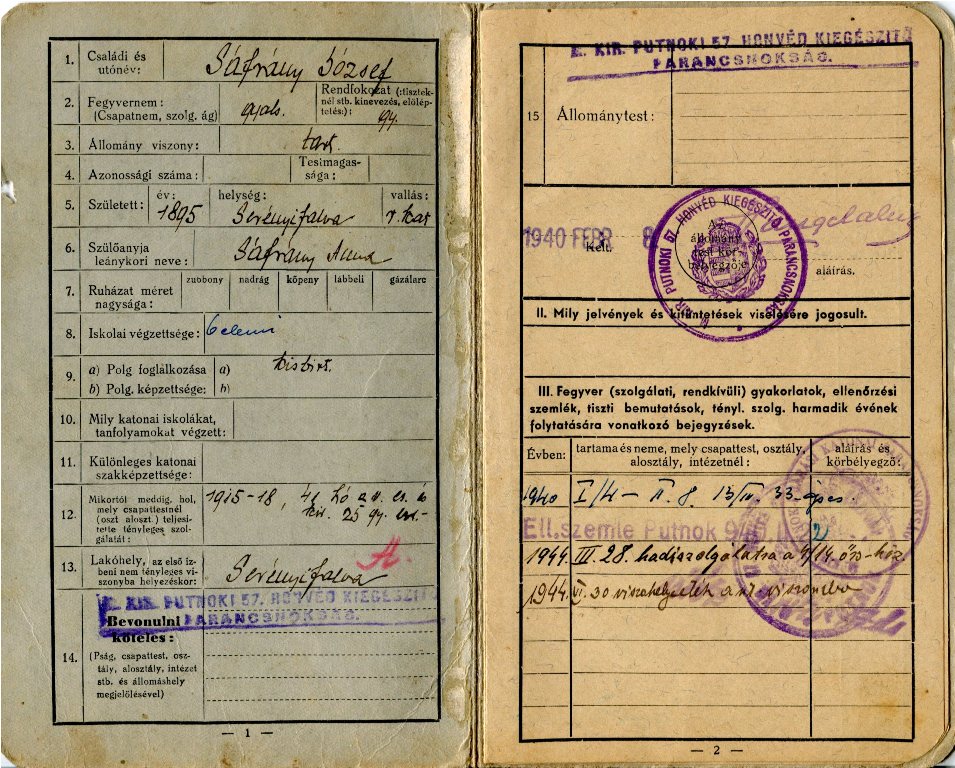 1. Családi és utónév: Sáfrány József
2. Fegyvernem: (Csapatnem, szolg. ág) gyals. Rendfokozat (:tiszteknél stb. kinevezés, előléptetés:): gy.
3. Állomány viszony: tart.
4. Azonossági száma: Testmagassága:
5. Született: év: 1895 helység: Serényifalva vallás: r. kat
6. Szülőanyja leánykori neve: Sáfrány Anna
7. Ruházat méret nagysága: zubbony nadrág köpeny lábbeli gázálarc
8. Iskolai végzettsége: 6 elemi
9. a) Polg foglalkozása a) kisbirt.
b) Polg. képzettsége: b)
10. Mily katonai iskolákat, tanfolyamokat végzett:
11. Különleges katonai szakképzettsége:
12. Mikortól meddig, hol, mely csapattestnél (oszt aloszt.) teljesitette tényleges szolgálatát: 1915-18, hó 25 gy.
13. Lakóhely, az első ízbeni nem tényleges viszonyba helyezéskor: Serényifalva
A.
M. KIR. PUTNOKI 57. HONVÉD KIEGÉSZITŐ
PARANCSNOKSÁG.
14. Bevonulni köteles:
(Pság, csapattest, osztály, alosztály, intézet stb. és állomáshely megjelölésével)
— 1 —
M. KIR. PUTNOKI 57. HONVÉD KIEGÉSZITŐ
PARANCSNOKSÁG.
15 Állománytest:
1940 FEBR 8
Kelt.
M. KIR. PUTNOKI 57. HONVÉD KIEGÉSZITŐ PARANCSNOKSÁG
Az állomány
aláírás.
II. Mily jelvények és kitüntetések viselésére jogosult.
III. Fegyver (szolgálati, rendkívüli) gyakorlatok, ellenőrzési
szemlék, tiszti bemutatások, tényl. szolg. harmadik évének
folytatására vonatkozó bejegyzések.
Évben: tartama és neme, mely csapattest, osztály, alosztály, intézetnél: aláírás és körbélyegző:
1940 I/4 – II. 8. 13/II. 33
Ell. szemle Putnok
1944 III. 28. hadiszolgálatra a őrs.
1944 VI. 30 visszahelyezték a nt. viszonyba
— 2 —